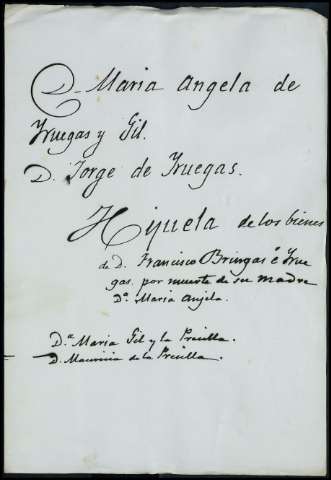 D. Maria Angela de
Yruegas y Gil.
D. Jorge de Yruegas.
Hijuela de los bienes
de D. Francisco Bringas é Yrue
gas. por muerte de su madre
Dª Maria Anjela.
D.ª Maria Gil y la Presilla.
D. Mauricia de la Presilla.